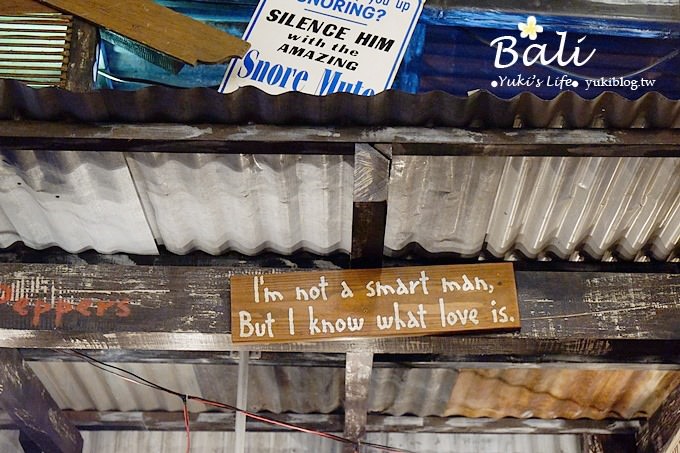 you up
SNORING?
SILENCE HIM
with the
AMAZING
Snore Mute
Bali
Yuki's Life yukiblog.tw
Peppers
I'm not a smart man,
But I know what love is.